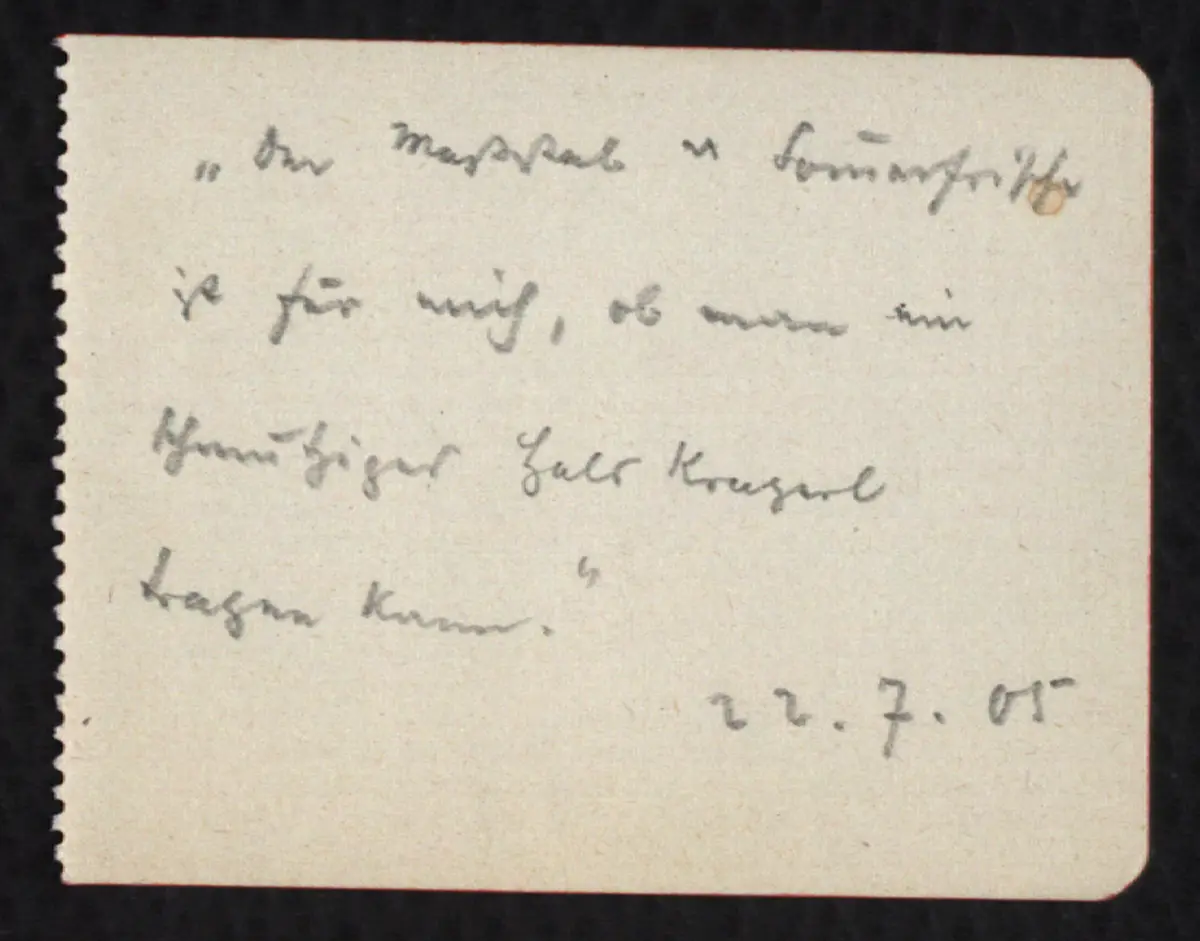 „Der Massstab "n" Som̄erfrische
ist für mich, ob man ein
schmutziges Hals Kragerl
tragen kann."
22. 7. 05